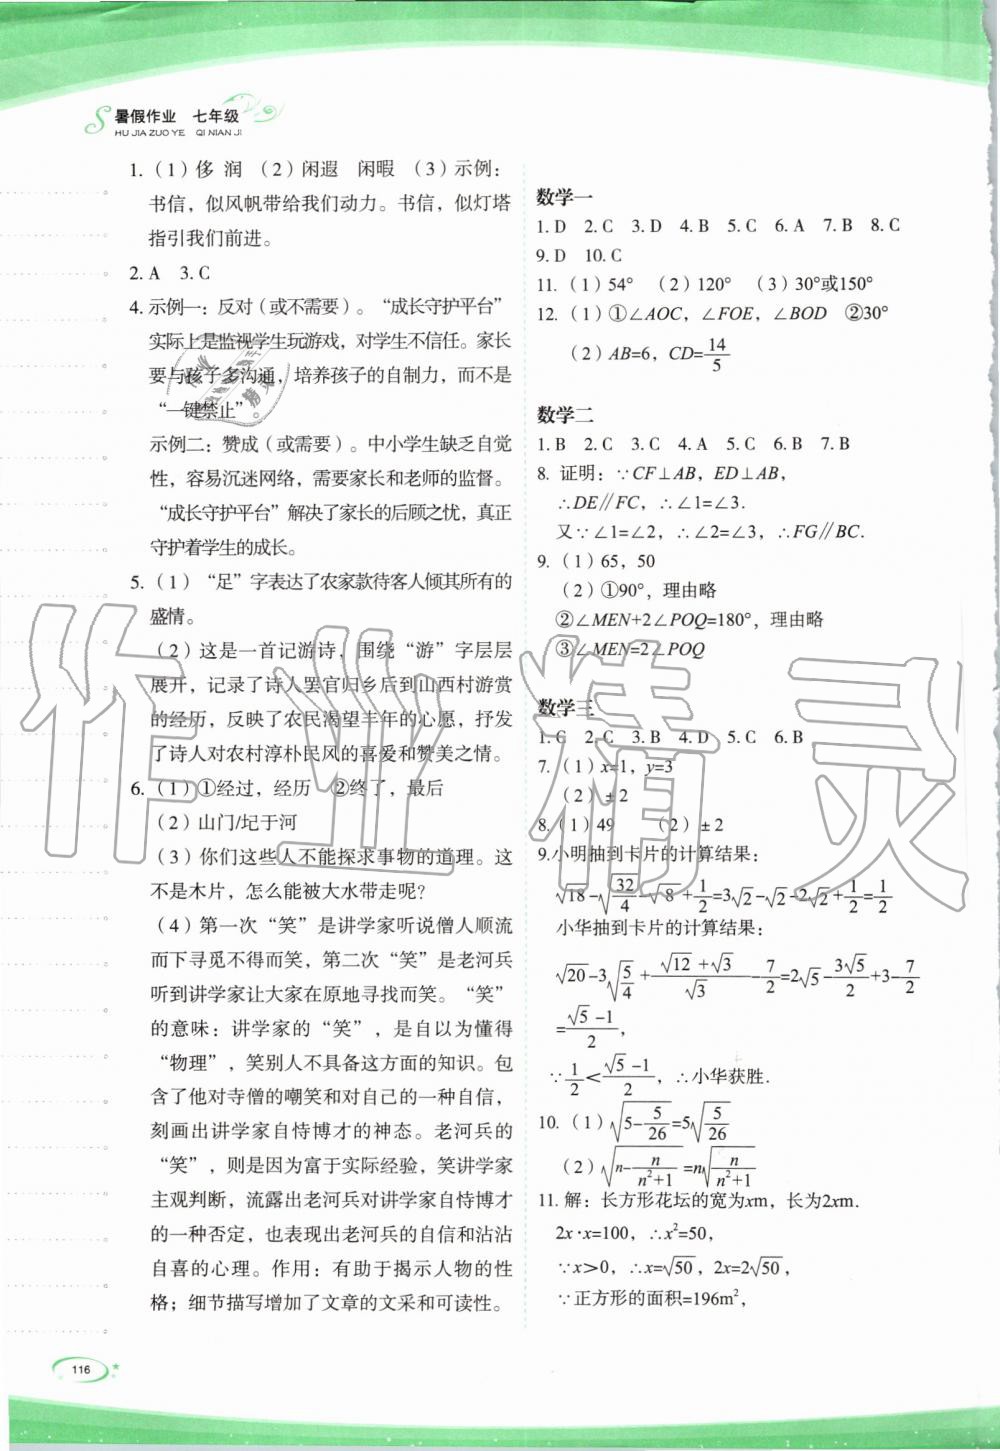 暑假作业 七年级
HU JIA ZUO YE QI NIAN JI
1.（1）侈 润 （2）闲遐 闲暇 （3）示例：
书信，似风帆带给我们动力。书信，似灯塔
指引我们前进。
2. A 3. C
4. 示例一：反对（或不需要）。“成长守护平台”
实际上是监视学生玩游戏，对学生不信任。家长
要与孩子多沟通，培养孩子的自制力，而不是
“一键禁止”。
示例二：赞成（或需要）。中小学生缺乏自觉
性，容易沉迷网络，需要家长和老师的监督。
“成长守护平台”解决了家长的后顾之忧，真正
守护着学生的成长。
5.（1）“足”字表达了农家款待客人倾其所有的
盛情。
（2）这是一首记游诗，围绕“游”字层层
展开，记录了诗人罢官归乡后到山西村游赏
的经历，反映了农民渴望丰年的心愿，抒发
了诗人对农村淳朴民风的喜爱和赞美之情。
6.（1）①经过，经历 ②终了，最后
（2）山门/圮于河
（3）你们这些人不能探求事物的道理。这
不是木片，怎么能被大水带走呢？
（4）第一次“笑”是讲学家听说僧人顺流
而下寻觅不得而笑，第二次“笑”是老河兵
听到讲学家让大家在原地寻找而笑。“笑”
的意味：讲学家的“笑”，是自以为懂得
“物理”，笑别人不具备这方面的知识。包
含了他对寺僧的嘲笑和对自己的一种自信，
刻画出讲学家自恃博才的神态。老河兵的
“笑”，则是因为富于实际经验，笑讲学家
主观判断，流露出老河兵对讲学家自恃博才
的一种否定，也表现出老河兵的自信和沾沾
自喜的心理。作用：有助于揭示人物的性
格；细节描写增加了文章的文采和可读性。
数学一
1. D 2. C 3. D 4. B 5. C 6. A 7. B 8. C
9. D 10. C
11.（1）54° （2）120° （3）30°或150°
12.（1）①∠AOC，∠FOE，∠BOD ②30°
（2）AB=6，CD=14/5
数学二
1. B 2. C 3. C 4. A 5. C 6. B 7. B
8. 证明：∵CF⊥AB，ED⊥AB，
∴DE∥FC，∴∠1=∠3.
又∵∠1=∠2，∴∠2=∠3，∴FG∥BC.
9.（1）65，50
（2）①90°，理由略
②∠MEN+2∠POQ=180°，理由略
③∠MEN=2∠POQ
数学三
1. C 2. C 3. B 4. D 5. C 6. B
7.（1）x=1，y=3
（2）±2
8.（1）49 （2）±2
9.小明抽到卡片的计算结果：
√18-√(32/4)-√8+1/2=3√2-√2-2√2+1/2=1/2
小华抽到卡片的计算结果：
√20-3√(5/4)+(√12+√3)/√3-7/2=2√5-3√5/2+3-7/2
=(√5-1)/2，
∵1/2<(√5-1)/2，∴小华获胜.
10.（1）√(5-5/26)=5√(5/26)
（2）√(n-n/(n²+1))=n√(n/(n²+1))
11. 解：长方形花坛的宽为xm，长为2xm.
2x·x=100，∴x²=50，
∵x>0，∴x=√50，2x=2√50，
∵正方形的面积=196m²，
116
作业精灵